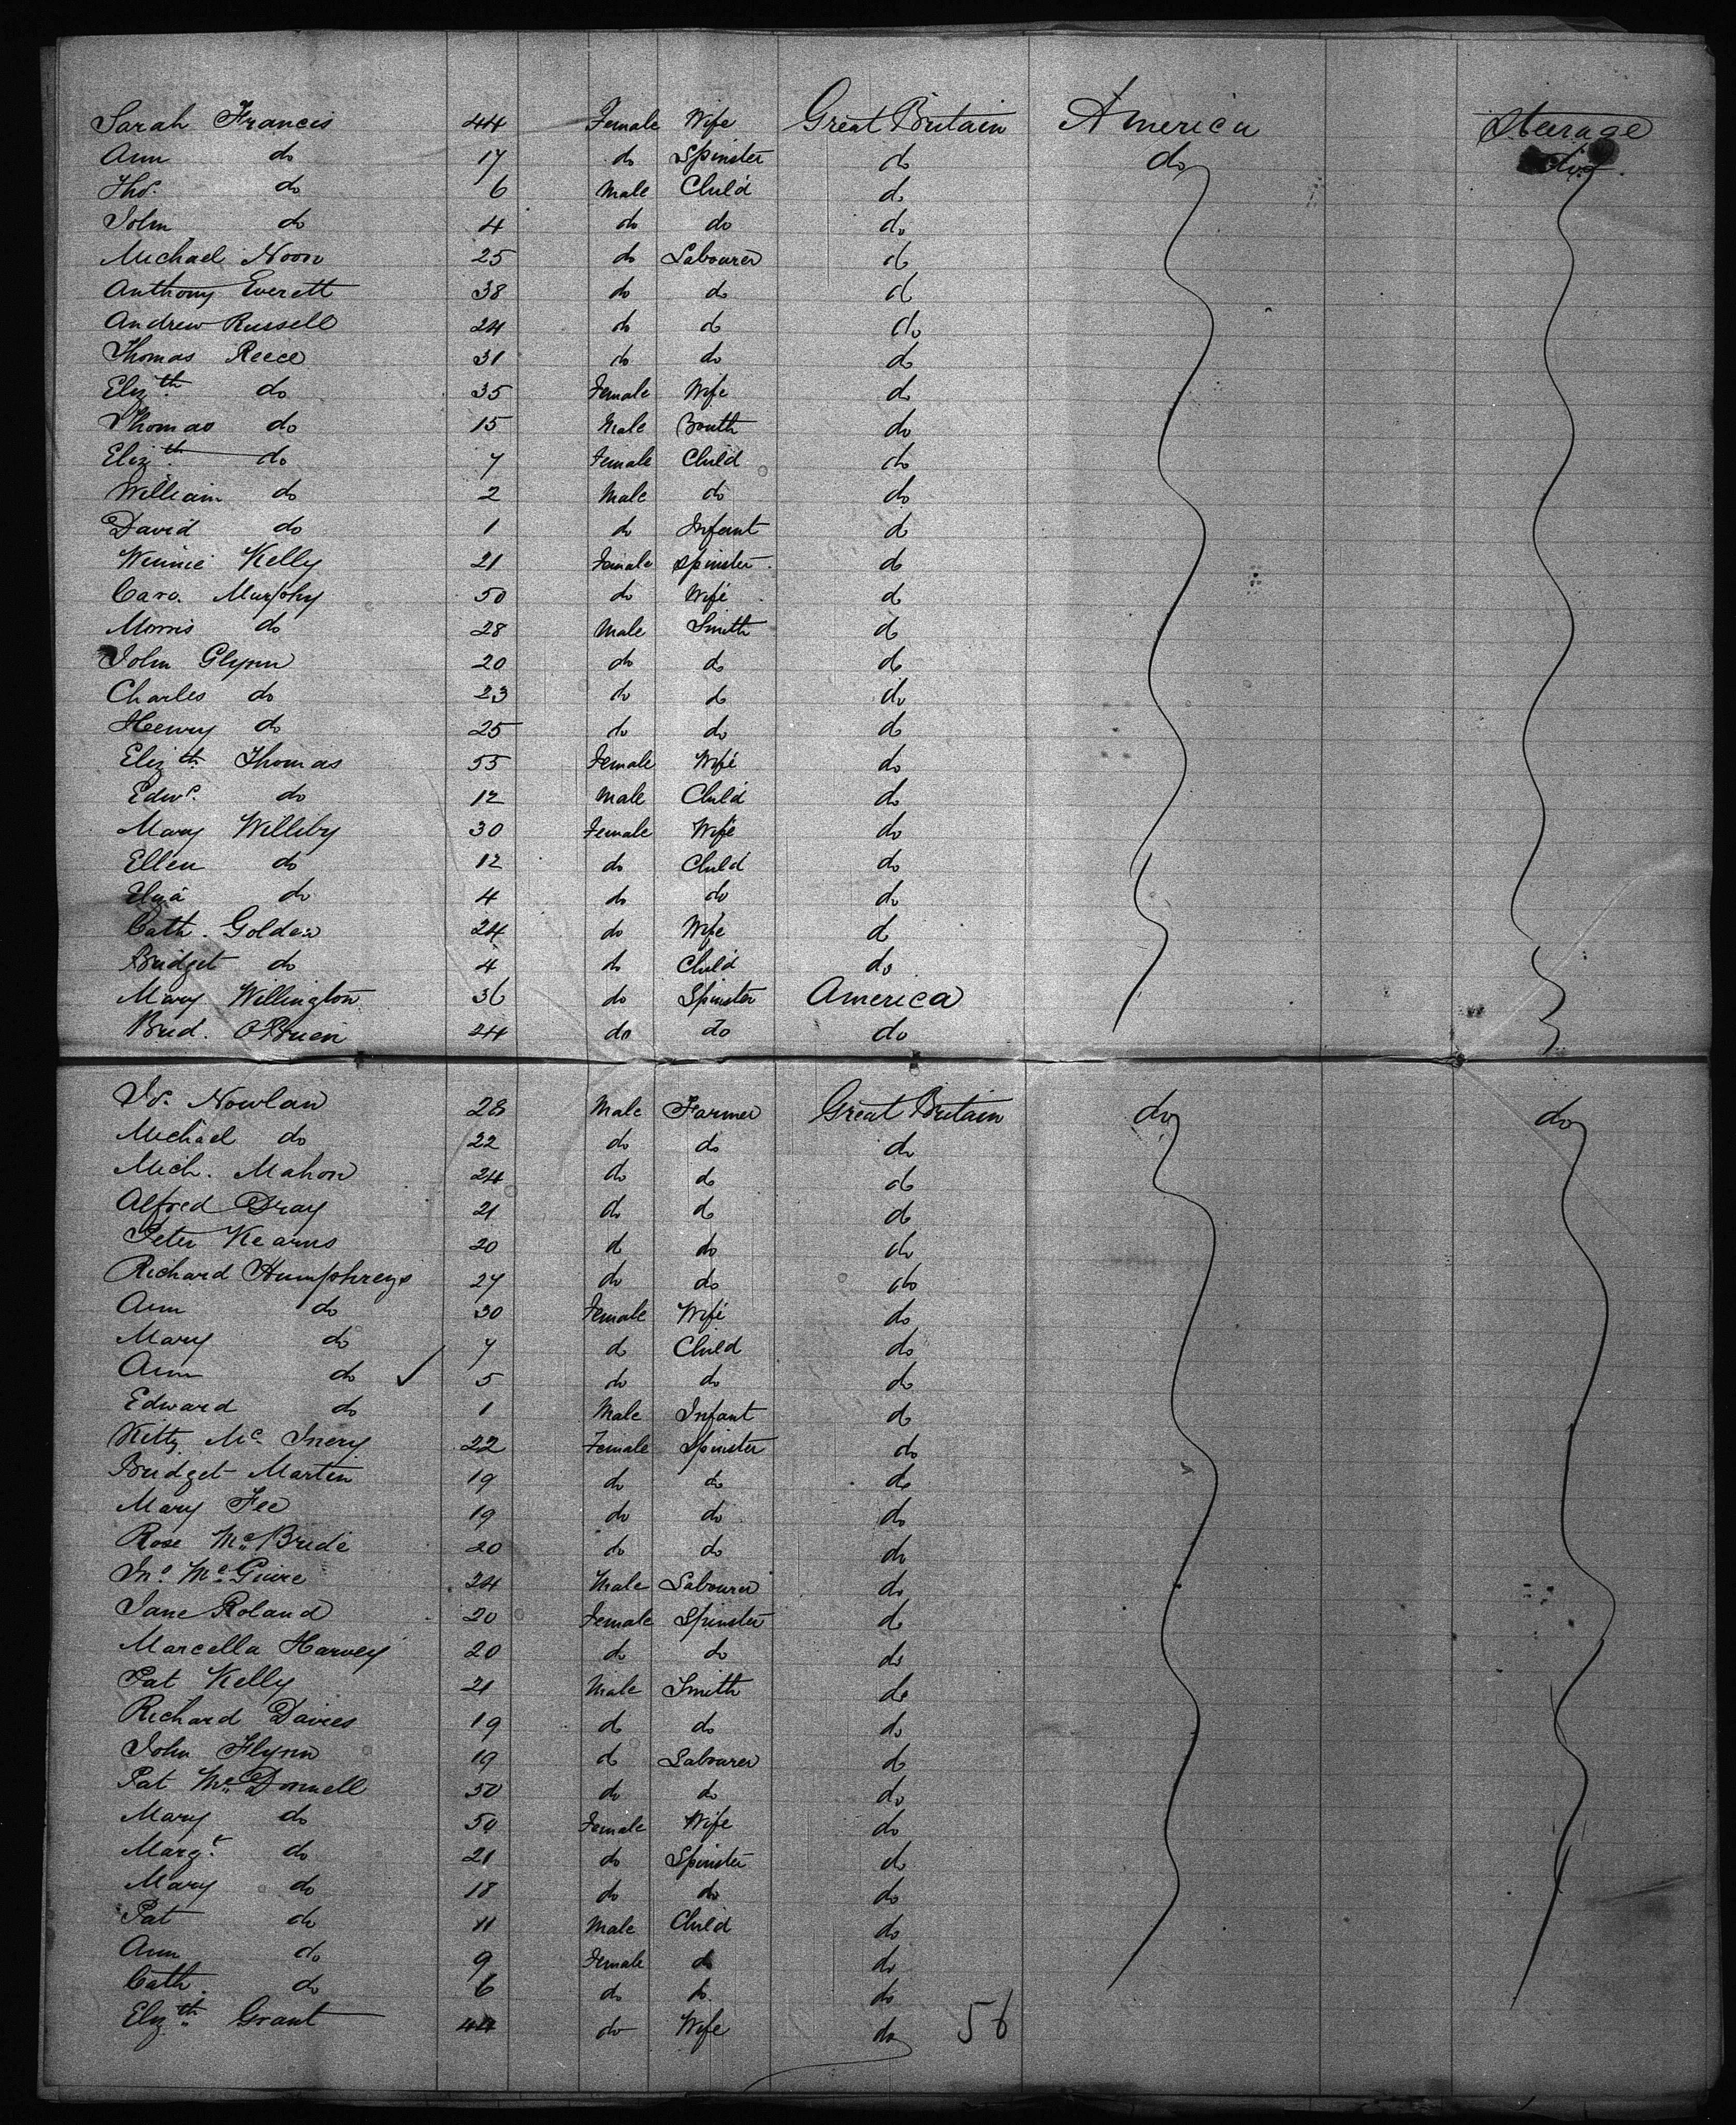 Sarah Francis 44 Female Wife Great Britain America Stearage
Ann do 17 do Spinster do do do
Thos. do 6 Male Child do
John do 4 do do do
Michael Noon 25 do Labourer do
Anthony Everett 38 do do do
Andrew Russell 24 do do do
Thomas Reece 31 do do do
Elizth. do 35 Female Wife do
Thomas do 15 Male Youth do
Elizth. do 7 Female Child do
William do 2 Male do do
David do 1 do Infant do
Winnie Kelly 21 Female Spinster do
Caro. Murphy 50 do Wife do
Morris do 28 Male Smith do
John Glynn 20 do do do
Charles do 23 do do do
Henry do 25 do do do
Elizth. Thomas 55 Female Wife do
Edwd. do 12 Male Child do
Mary Williby 30 Female Wife do
Ellen do 12 do Child do
do 4 do do do
Cath. Golden 24 do Wife do
Bridget do 4 do Child do
Mary Willington 36 do Spinster America
Brid. OBrien 24 do do do
Js. Nowlan 28 Male Farmer Great Britain do do
Michael do 22 do do do
Mich. Mahon 24 do do do
Alfred Dray 21 do do do
Peter Kearns 20 do do do
Richard Humphreys 27 do do do
Ann do 30 Female Wife do
Mary do 7 do Child do
Ann do ✓ 5 do do do
Edward do 1 Male Infant do
Kitty Mc. Inery 22 Female Spinster do
Bridget Martin 19 do do do
Mary Fee 19 do do do
Rose Mc.Bride 20 do do do
Jno. Mc.Guire 24 Male Labourer do
Jane Roland 20 Female Spinster do
Marcella Harvey 20 do do do
Pat Kelly 21 Male Smith do
Richard Davies 19 do do do
John Flynn 19 do Labourer do
Pat Mc.Donnell 50 do do do
Mary do 50 Female Wife do
Margt. do 21 do Spinster do
Mary do 18 do do do
Pat do 11 Male Child do
Ann do 9 Female do do
Cath. do 6 do do do
Elizth. Grant 44 do Wife do 56